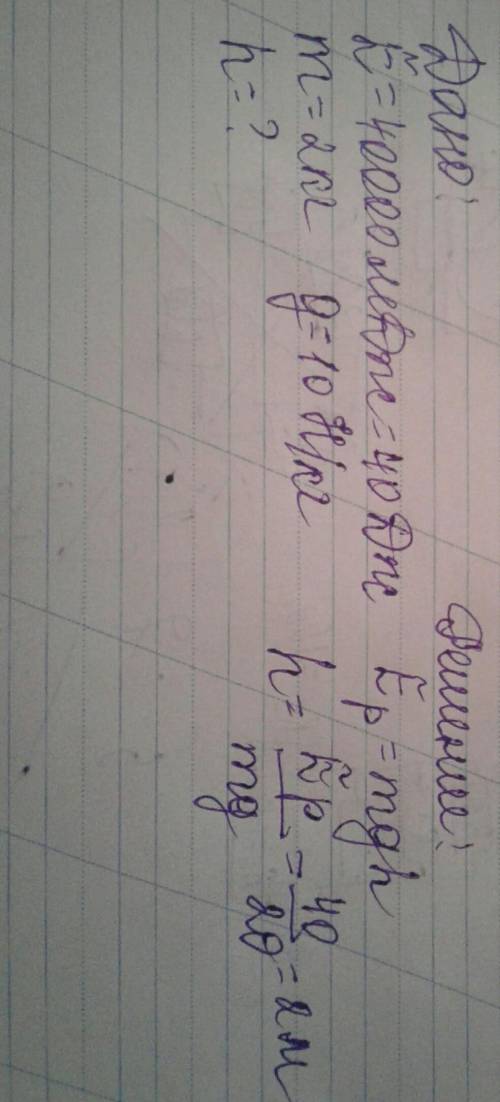 Дано:
E = 40000 мДж = 40 Дж
m = 2 кг g = 10 Н/кг
h = ?
Решение:
Eр = mgh
h = Eр/mg = 40/20 = 2 м